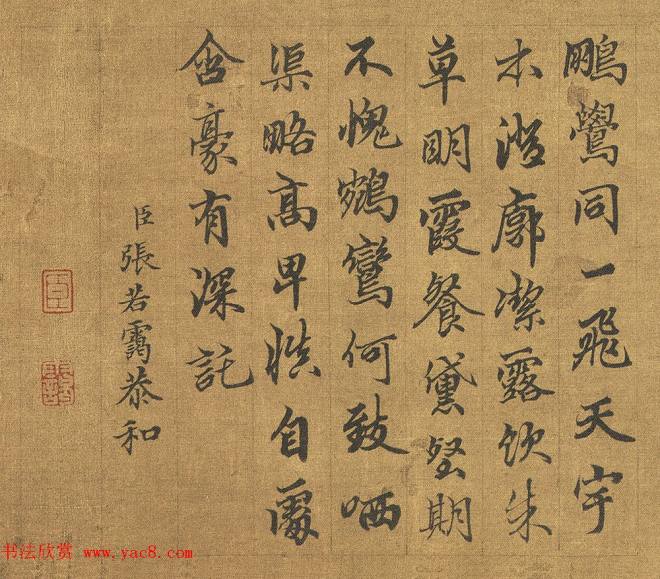 鵬鷽同一飛天宇
本澄廓潔露飲朱
草明霞餐黛壑期
不愧鵷鸞何致哂
渠略高卑慎自處
含豪有深託
臣張若靄恭和
书法欣赏 www.yac8.com